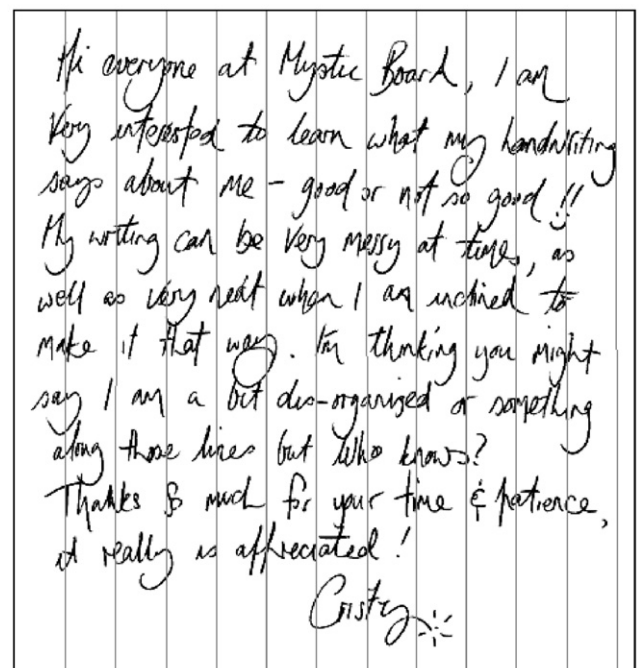 Hi everyone at Mystic Board, I am
very interested to learn what my handwriting
says about me - good or not so good !!
My writing can be very messy at times, as
well as very neat when I am inclined to
make it that way. I'm thinking you might
say I am a bit dis-organized or something
along those lines but who knows?
Thanks so much for your time & patience,
it really is appreciated!
Cristy